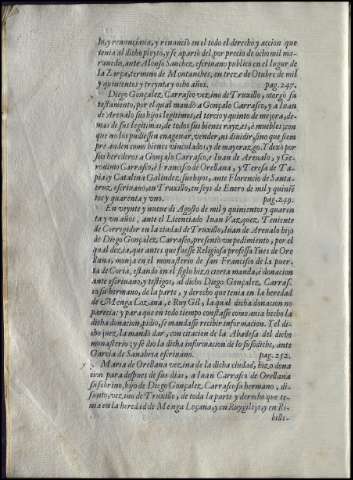 lo, y renuncia, y renunciò en el todo el derecho y accion que
tenia al dicho pleyto, y se apartò del por precio de ocho mil ma-
rauedis, ante Alonso Sanchez, escriuano publico en el lugar de
la Zarça, termino de Montanches, en treze de Otubre de mil
y quinientos y treynta y ocho años. pag. 247.
Diego Gonçalez, Carrasco vezino de Truxillo, otorgò su
testamento, por el qual mandò a Gonçalo Carrasco, y a Iuan
de Arenalo sus hijos legitimos, el tercio y quinto de mejora, de-
mas de sus legitimas, de todos sus bienes rayzes, è muebles; con
que no los pudiessen enagenar, vender, ni diuidir, sino que siem
pre anden como bienes vinculados, y de mayorazgo. Y dexò por
sus herederos a Gonçalo Carrasco, è Iuan de Arenalo, y Ge-
ronimo Carrasco, è Francisco de Orellana, y Teresa de Ta-
pia, y Catalina Galindez, sus hijos, ante Florencio de Santa-
croz, escriuano, en Truxillo, en seys de Enero de mil y quiniẽ
tos y quarenta y vno. pag. 249.
En veynte y nueue di Agosto de mil y quinientos y quaren
ta y vn años, ante el Licenciado Iuan Vazquez, Teniente
de Corregidor en la ciudad de Truxillo, Iuan de Arenalo hijo
de Diego Gonçalez, Carrasco, presentò vn pedimiento, por el
qual dezia, que antes que fuesse Religiosa professa Ynes de Ore
llana, monja en el monasterio de san Francisco de la puer-
ta de Coria, estando en el siglo hizo cierta manda, ò donacion
ante escriuano, y testigos, al dicho Diego Gonçalez, Carras-
co su hermano, de la parte, y derecho que tenia en la heredad
de Menga Lozana, è Ruy Gil, la qual dicha donacion no
parecia: y para que en todo tiempo constasse como auia hecho la
dicha donacion, pidiò, se mandasse recebir informacion. Y el di-
cho juez, la mandò dar, con citacion de la Abadesa del dicho
monasterio: y se dio la dicha informacion de lo susodicho, ante
Garcia de Sanabria escriuano. pag. 252.
Maria de Orellana vezina de la dicha ciudad, hizo dona
cion para despues de sus dias, a Iuan Carrasco de Orellana
su sobrino, hijo de Diego Gonçalez, Carrasco su hermano, di-
funto, vezino de Truxillo, de toda la parte y derecho que te-
nia en la heredad de Menga Loçana, y en Ruygil; y en Ri-
billa-